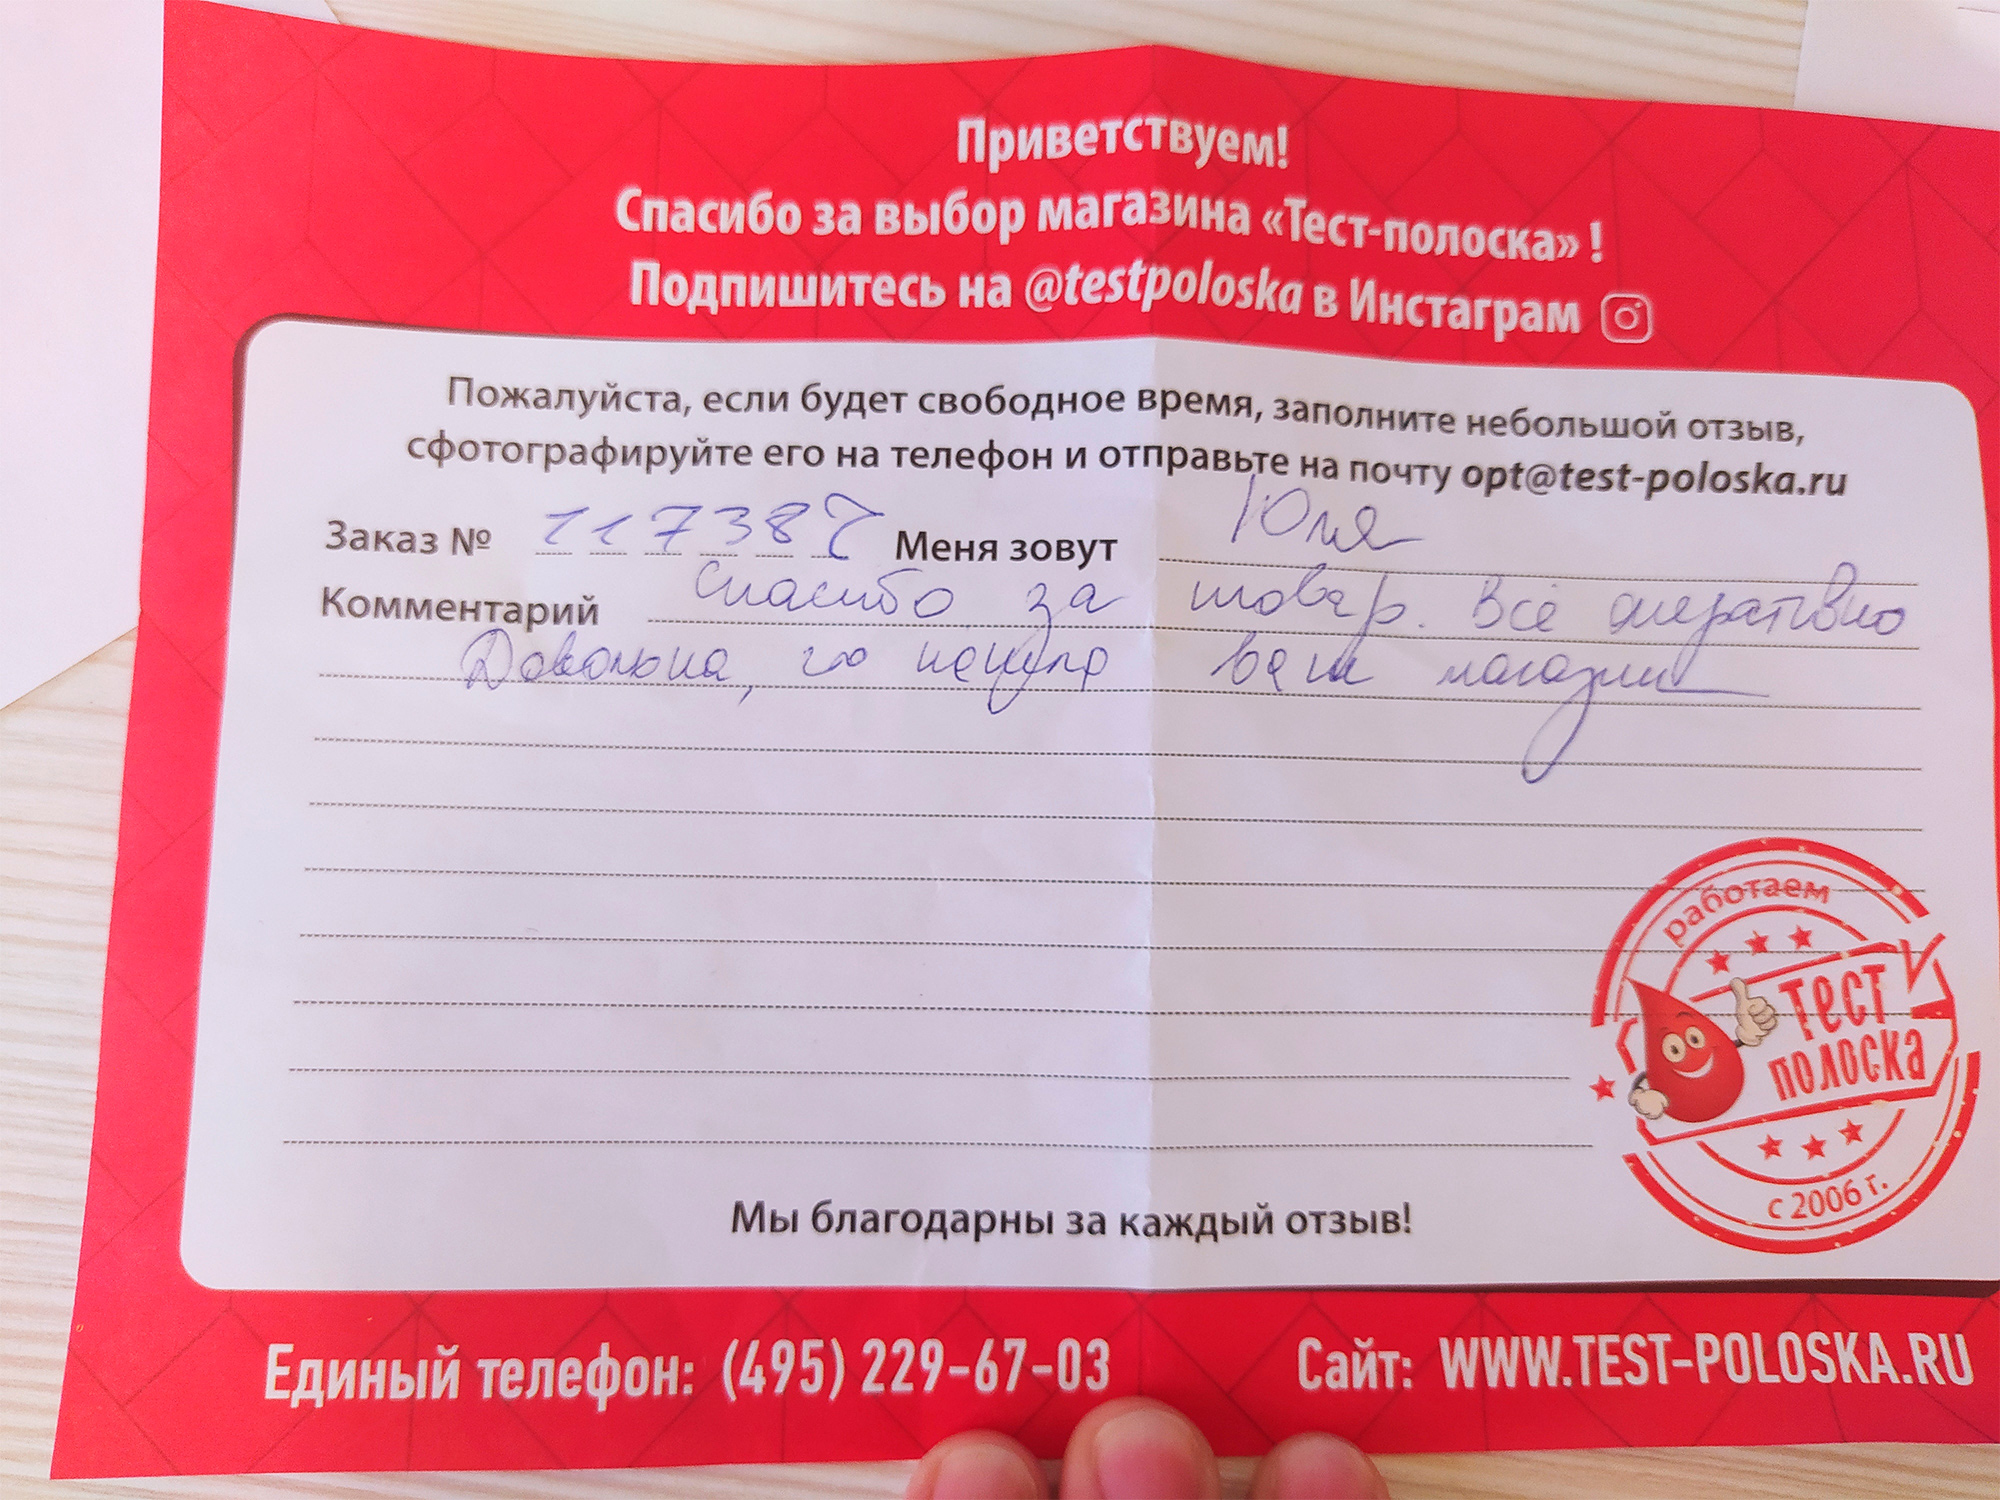 Приветствуем!
Спасибо за выбор магазина «Тест-полоска» !
Подпишитесь на @testpoloska в Инстаграм
Пожалуйста, если будет свободное время, заполните небольшой отзыв,
сфотографируйте его на телефон и отправьте на почту opt@test-poloska.ru
Заказ № 117387 Меня зовут Юля
Комментарий Спасибо за товар. Всё оперативно
Довольна, что нашла ваш магазин
работаем
Тест
полоска
с 2006 г.
Мы благодарны за каждый отзыв!
Единый телефон: (495) 229-67-03 Сайт: WWW.TEST-POLOSKA.RU